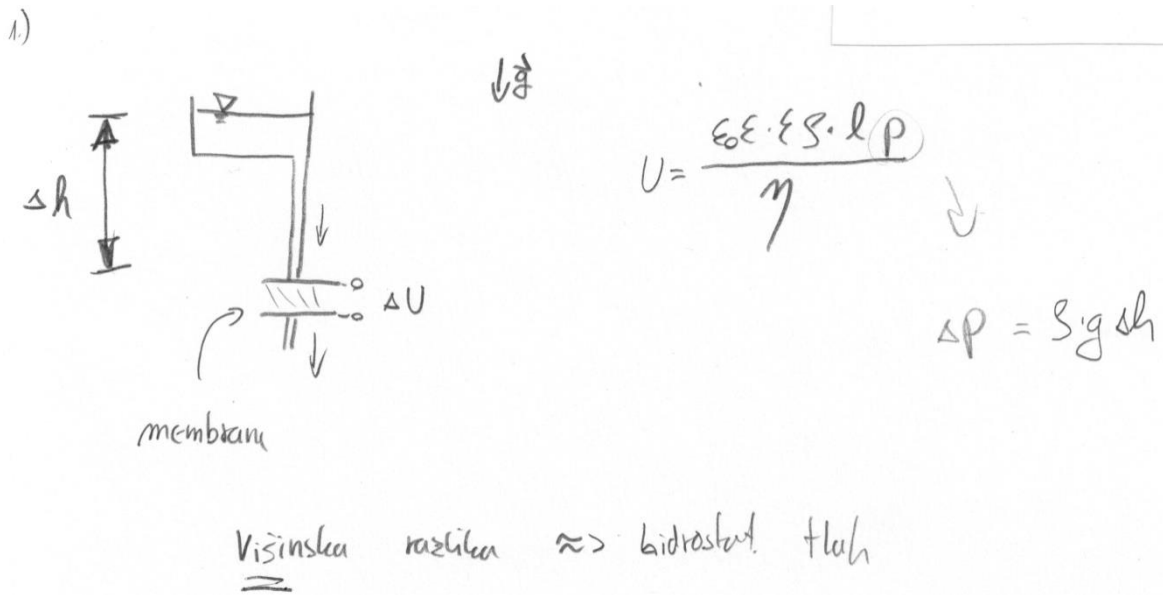 1.)
↓g⃗
Δh
ΔU
membrana
U = ε₀ε·ξ ρ·l p / η
Δp = ρ·g Δh
Višinska razlika ≈> hidrostat. tlak